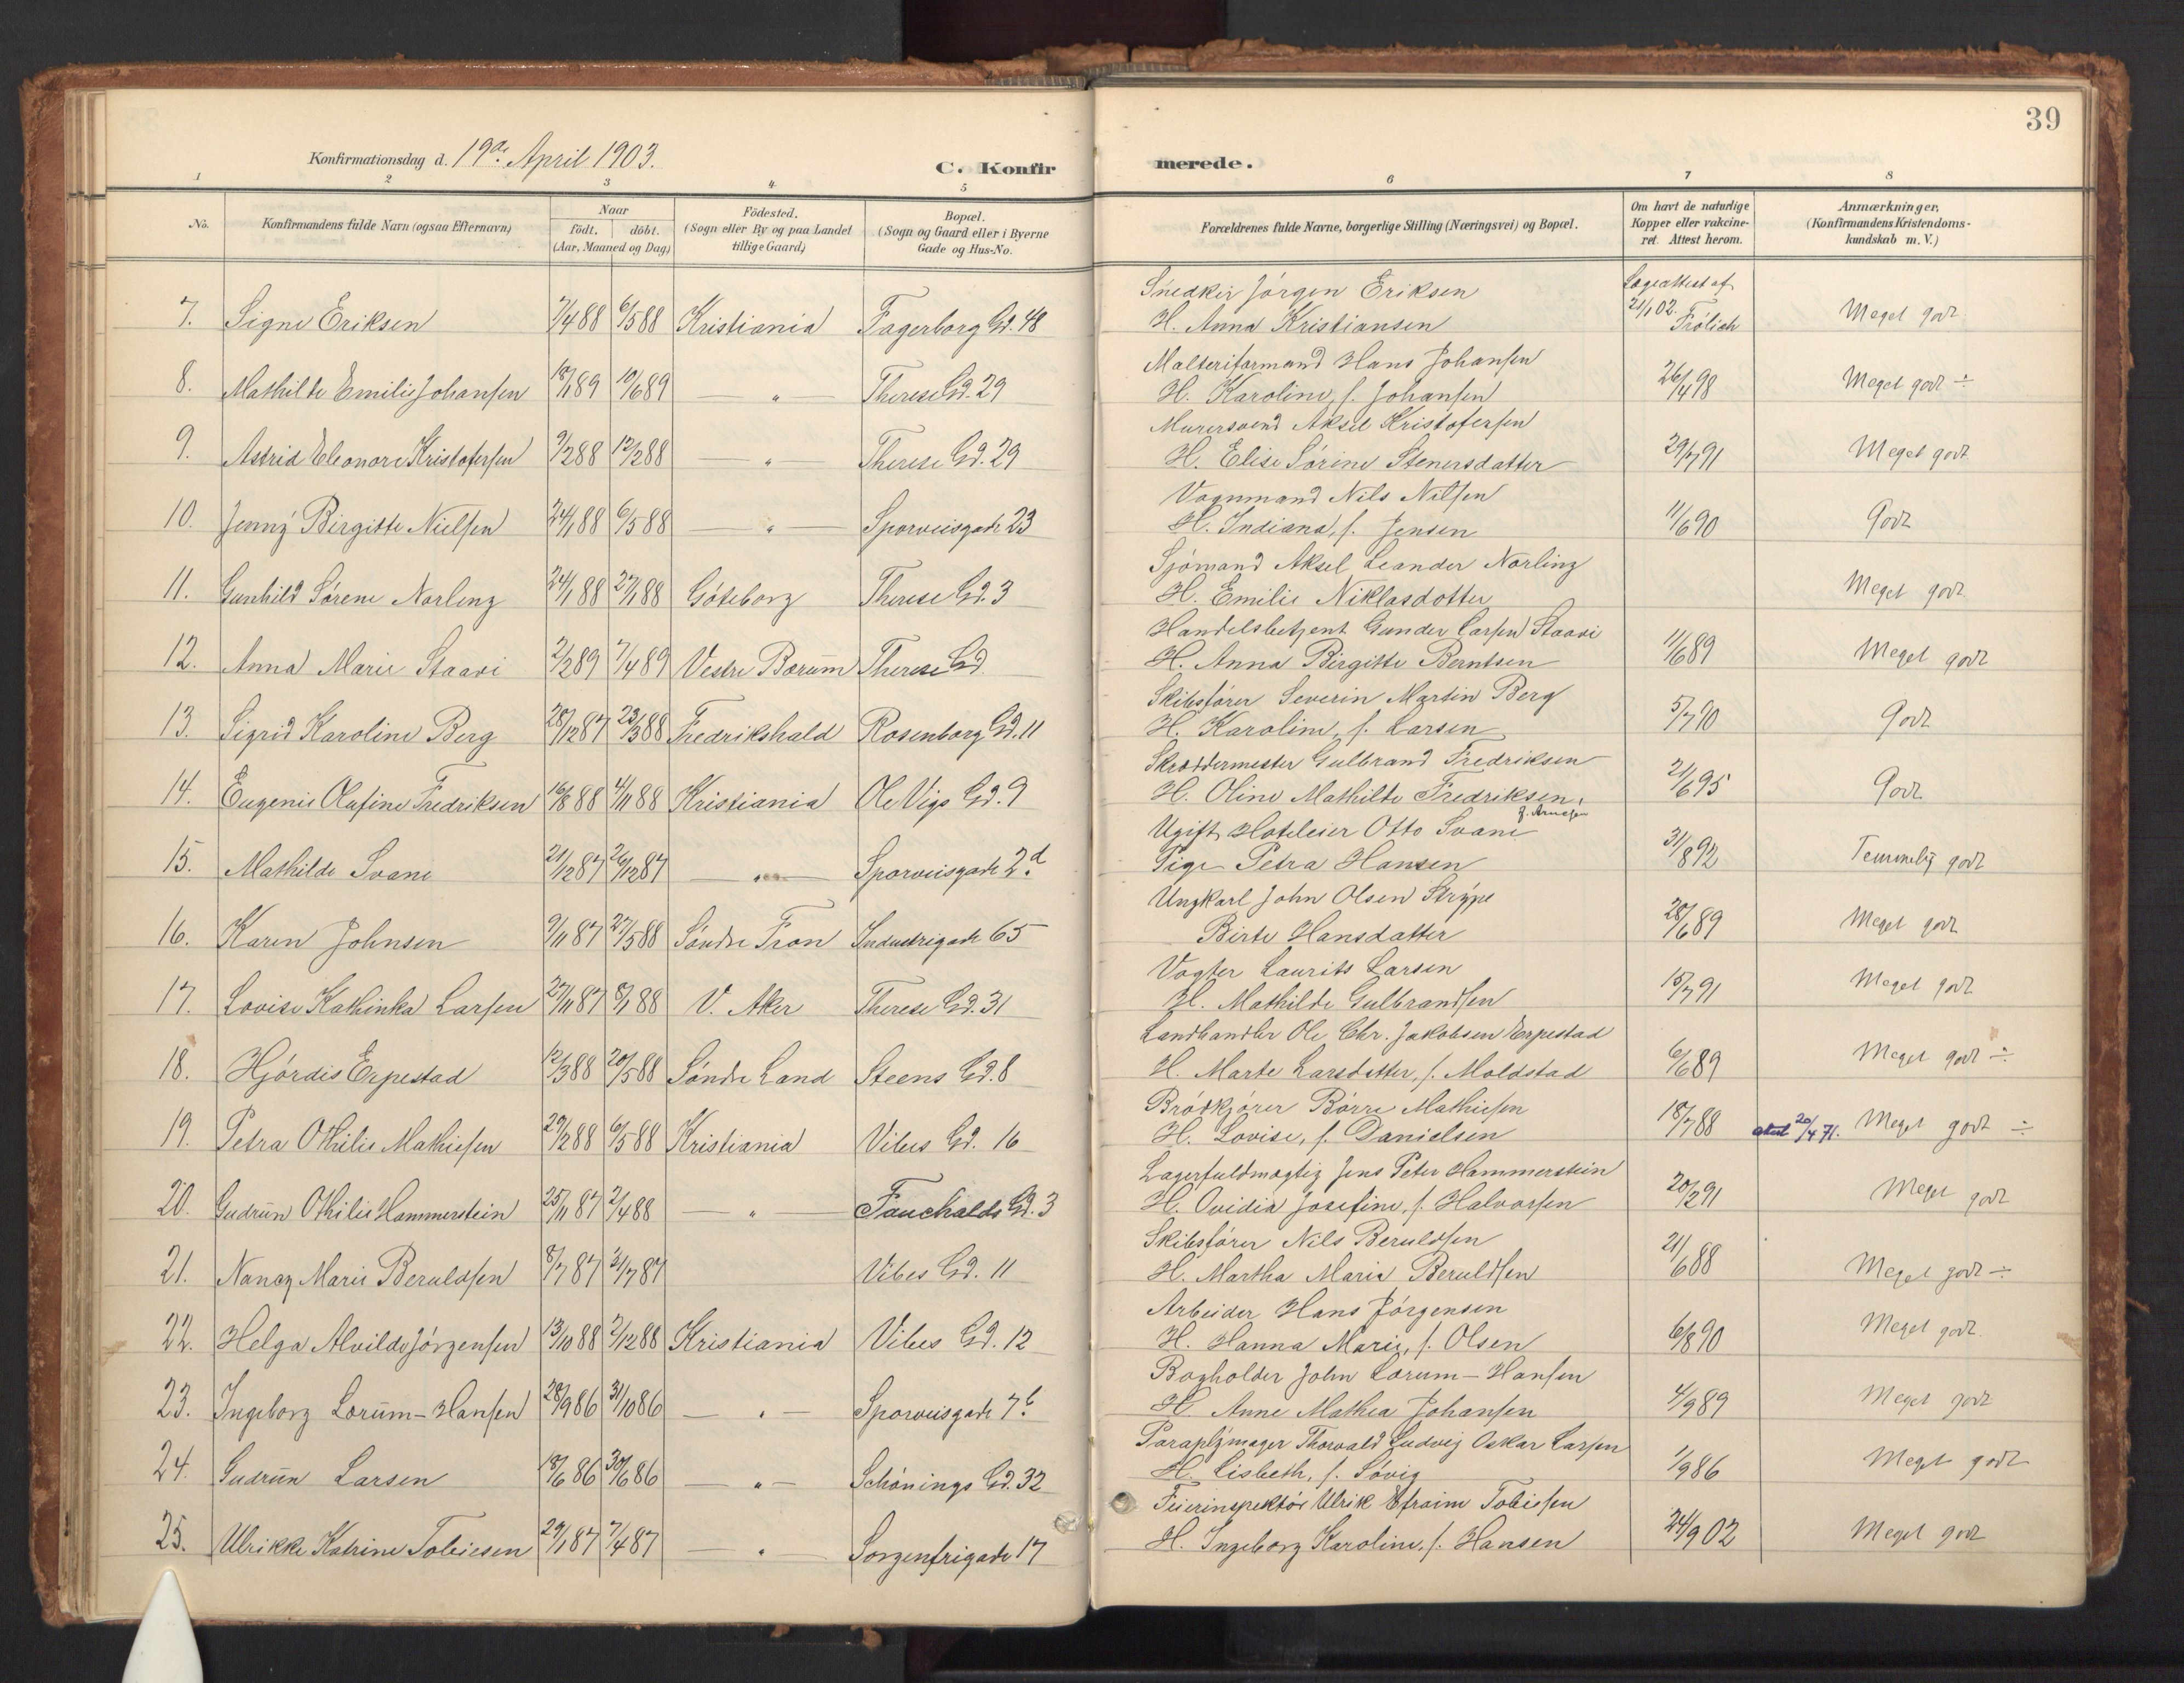 39
Konfirmationsdag d. 19de April 1903.
C. Konfirmerede.
1 2 3 4 5 6 7 8
No.
Konfirmandens fulde Navn (ogsaa Efternavn)
Naar
födt. döbt.
(Aar, Maaned og Dag)
Födested.
(Sogn eller By og paa Landet
tillige Gaard)
Bopæl.
(Sogn og Gaard eller i Byerne
Gade og Hus-No.
Forældrenes fulde Navne, borgerlige Stilling (Næringsvei) og Bopæl.
Om havt de naturlige
Kopper eller vakcine-
ret. Attest herom.
Anmærkninger,
(Konfirmandens Kristendoms-
kundskab m. V.)
Snedker Jörgen Eriksen Lægeattest af
7. Signe Eriksen 7/4 88 6/5 88 Kristiania Fagerborg Gd. 48 H. Anna Kristiansen 21/1 02. Frölich Meget godt
Malteriformand Hans Johansen
8. Mathilde Emilie Johansen 18/1 89 10/6 89 — " — Therese Gd. 29 H. Karoline, f. Johansen 26/4 98 Meget godt ÷
Murersvend Aksel Kristofersen
9. Astrid Eleonore Kristofersen 9/2 88 12/2 88 — " — Therese Gd. 29 H. Elise Sörine Stenersdatter 29/7 91 Meget godt
Vognmand Nils Nilsen
10. Jenny Birgitte Nielsen 24/1 88 6/5 88 — " — Sporveisgade 23 H. Indiana, f. Jensen 11/6 90 Godt
Sjömand Aksel Leander Norling
11. Gunhild Sörene Norling 24/1 88 27/1 88 Göteborg Therese Gd. 3 H. Emilie Niklasdotter Meget godt
Handelsbetjent Gunder Larsen Staavi
12. Anna Marie Staavi 2/2 89 7/4 89 Vestre Bærum Therese Gd. H. Anna Birgitte Berntsen 11/6 89 Meget godt
Skibsförer Severin Martin Berg
13. Sigrid Karoline Berg 28/12 87 23/3 88 Fredrikshald Rosenborg Gd. 11 H. Karoline, f. Larsen 5/7 90 Godt
Skræddermester Gulbrand Fredriksen
14. Eugenie Olafine Fredriksen 16/8 88 4/11 88 Kristiania Ole Vigs Gd. 9 H. Oline Mathilde Fredriksen, 21/6 95 Godt
f. Arnesen
Ugift Hoteleier Otto Svane
15. Mathilde Svane 21/12 87 26/12 87 — " — Sporveisgade 2d Pige Petra Hansen 31/8 92 Temmelig godt
Ungkarl John Olsen Strype
16. Karen Johnsen 9/11 87 27/5 88 Söndre Fron Industrigade 65 Birte Hansdatter 28/6 89 Meget godt
Vogter Laurits Larsen
17. Lovise Kathinka Larsen 27/11 87 8/1 88 V. Aker Therese Gd. 31 H. Mathilde Gulbrandsen 15/7 91 Meget godt
Landhandler Ole Chr. Jakobsen Erpestad
18. Hjördis Erpestad 12/3 88 20/5 88 Söndre Land Steens Gd. 8 H. Marte Larsdatter, f. Moldstad 6/6 89 Meget godt ÷
Brödkjörer Börre Mathiesen
19. Petra Othilie Mathiesen 29/2 88 6/5 88 Kristiania Vibes Gd. 16 H. Lovise, f. Danielsen 18/7 88 attest 20/4 71. Meget godt ÷
Lagerfuldmægtig Jens Peter Hammerstein
20. Gudrun Othilie Hammerstein 25/11 87 2/4 88 — " — Fauchalds Gd. 3 H. Ovidia Josefine, f. Halvorsen 20/2 91 Meget godt
Skibsförer Nils Beruldsen
21. Nancy Marie Beruldsen 8/7 87 31/7 87 Vibes Gd. 11 H. Martha Maria Beruldsen 21/6 88 Meget godt ÷
Arbeider Hans Jörgensen
22. Helga Alvilde Jörgensen 13/10 88 2/12 88 Kristiania Vibes Gd. 12 H. Hanna Marie, f. Olsen 6/8 90 Meget godt
Bogholder John Lorum-Hansen
23. Ingeborg Lorum-Hansen 28/9 86 31/10 86 — " — Sporveisgade 7b H. Anne Mathea Johansen 4/9 89 Meget godt
Paraplymager Thorvald Ludvig Oskar Larsen
24. Gudrun Larsen 18/6 86 30/6 86 — " — Schönings Gd. 32 H. Lisbeth, f. Sövig 1/9 86 Meget godt
Feierinspektör Ulrik Efraim Tobiesen
25. Ulrikke Katrine Tobiesen 29/1 87 7/4 87 — " — Sorgenfrigade 17 H. Ingeborg Karoline, f. Hansen 24/9 02 Meget godt